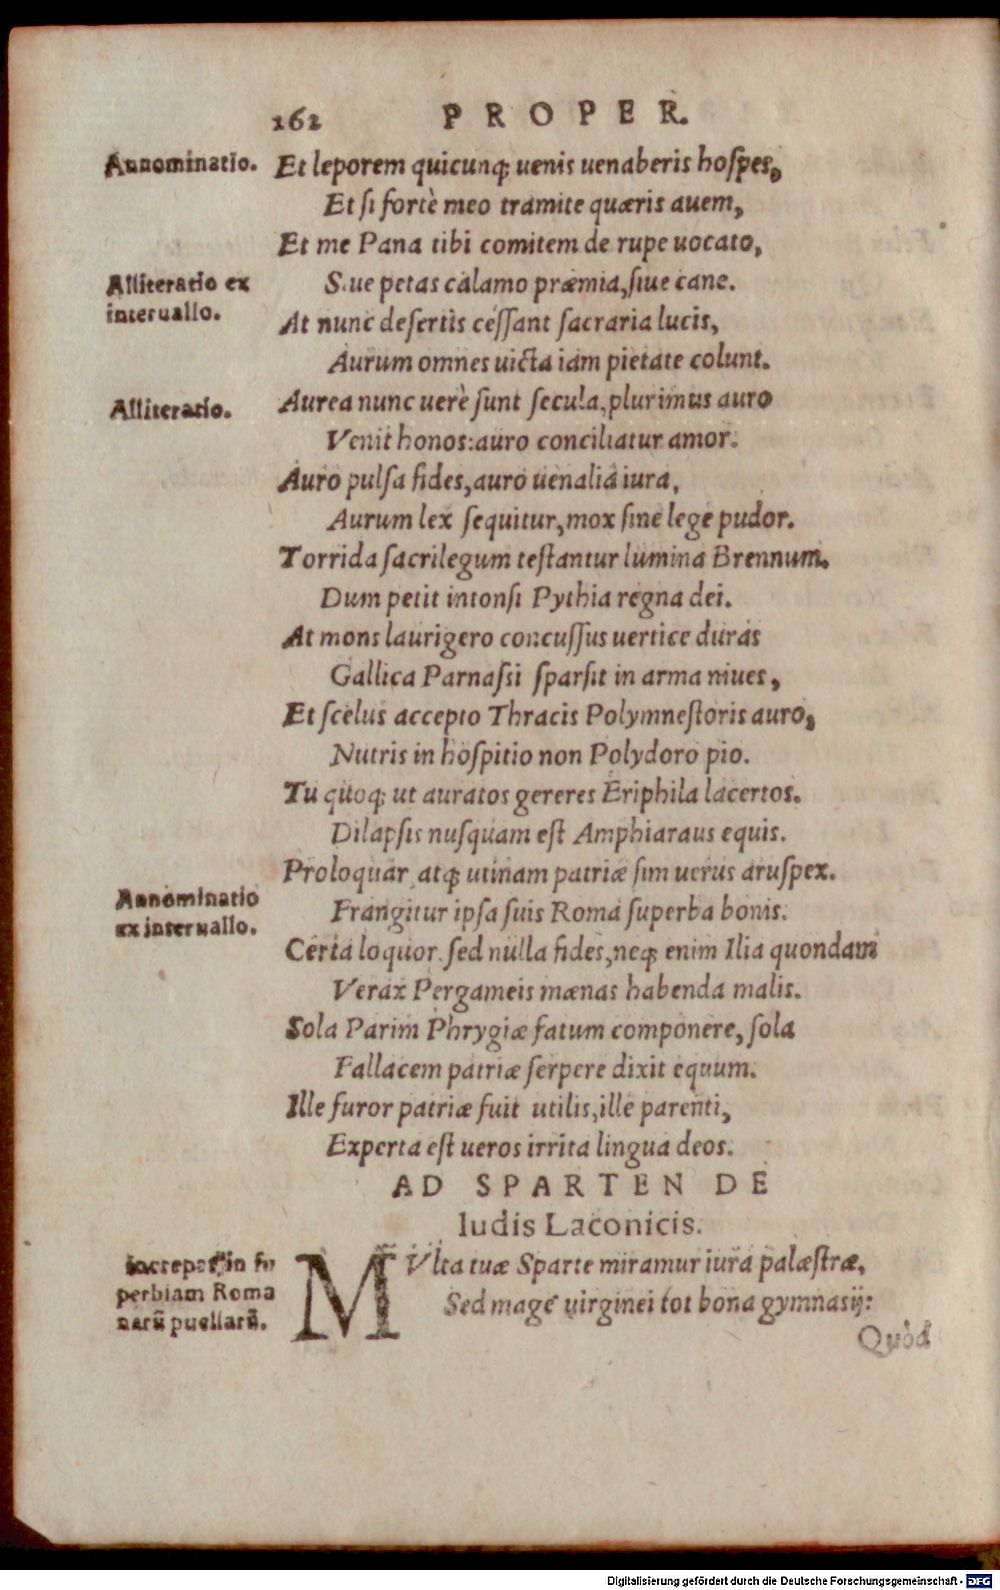 162 PROPER.
Annominatio.
Et leporem quicunq; uenis uenaberis hoſpes,
Et ſi fortè meo tramite quæris auem,
Et me Pana tibi comitem de rupe uocato,
Alliteratio ex
interuallo.
S.ue petas calamo præmia, ſiue cane.
At nunc deſertis ceſſant ſacraria lucis,
Aurum omnes uicta iam pietate colunt.
Alliteratio.
Aurea nunc uerè ſunt ſecula, plurimus auro
Venit honos: auro conciliatur amor.
Auro pulſa fides, auro uenalia iura,
Aurum lex ſequitur, mox ſine lege pudor.
Torrida ſacrilegum teſtantur lumina Brennum.
Dum petit intonſi Pythia regna dei.
At mons laurigero concuſſus uertice duras
Gallica Parnaſsi ſparſit in arma niues,
Et ſcelus accepto Thracis Polymneſtoris auro,
Nutris in hoſpitio non Polydoro pio.
Tu quoq; ut auratos gereres Eriphila lacertos.
Dilapſis nuſquam eſt Amphiaraus equis.
Proloquar, atq; utinam patriæ ſim uerus aruſpex.
Annominatio
ex interuallo.
Frangitur ipſa ſuis Roma ſuperba bonis.
Certa loquor. ſed nulla fides, neq; enim Ilia quondam
Verax Pergameis mænas habenda malis.
Sola Parim Phrygiæ fatum componere, ſola
Fallacem patriæ ſerpere dixit equum.
Ille furor patriæ fuit utilis, ille parenti,
Experta eſt ueros irrita lingua deos.
AD SPARTEN DE
ludis Laconicis.
Increpat in ſu
perbiam Roma
narũ puellarũ.
MVlta tuæ Sparte miramur iura palæſtræ,
Sed mage uirginei tot bona gymnasij:
Quòd
Digitalisierung gefördert durch die Deutsche Forschungsgemeinschaft - DFG